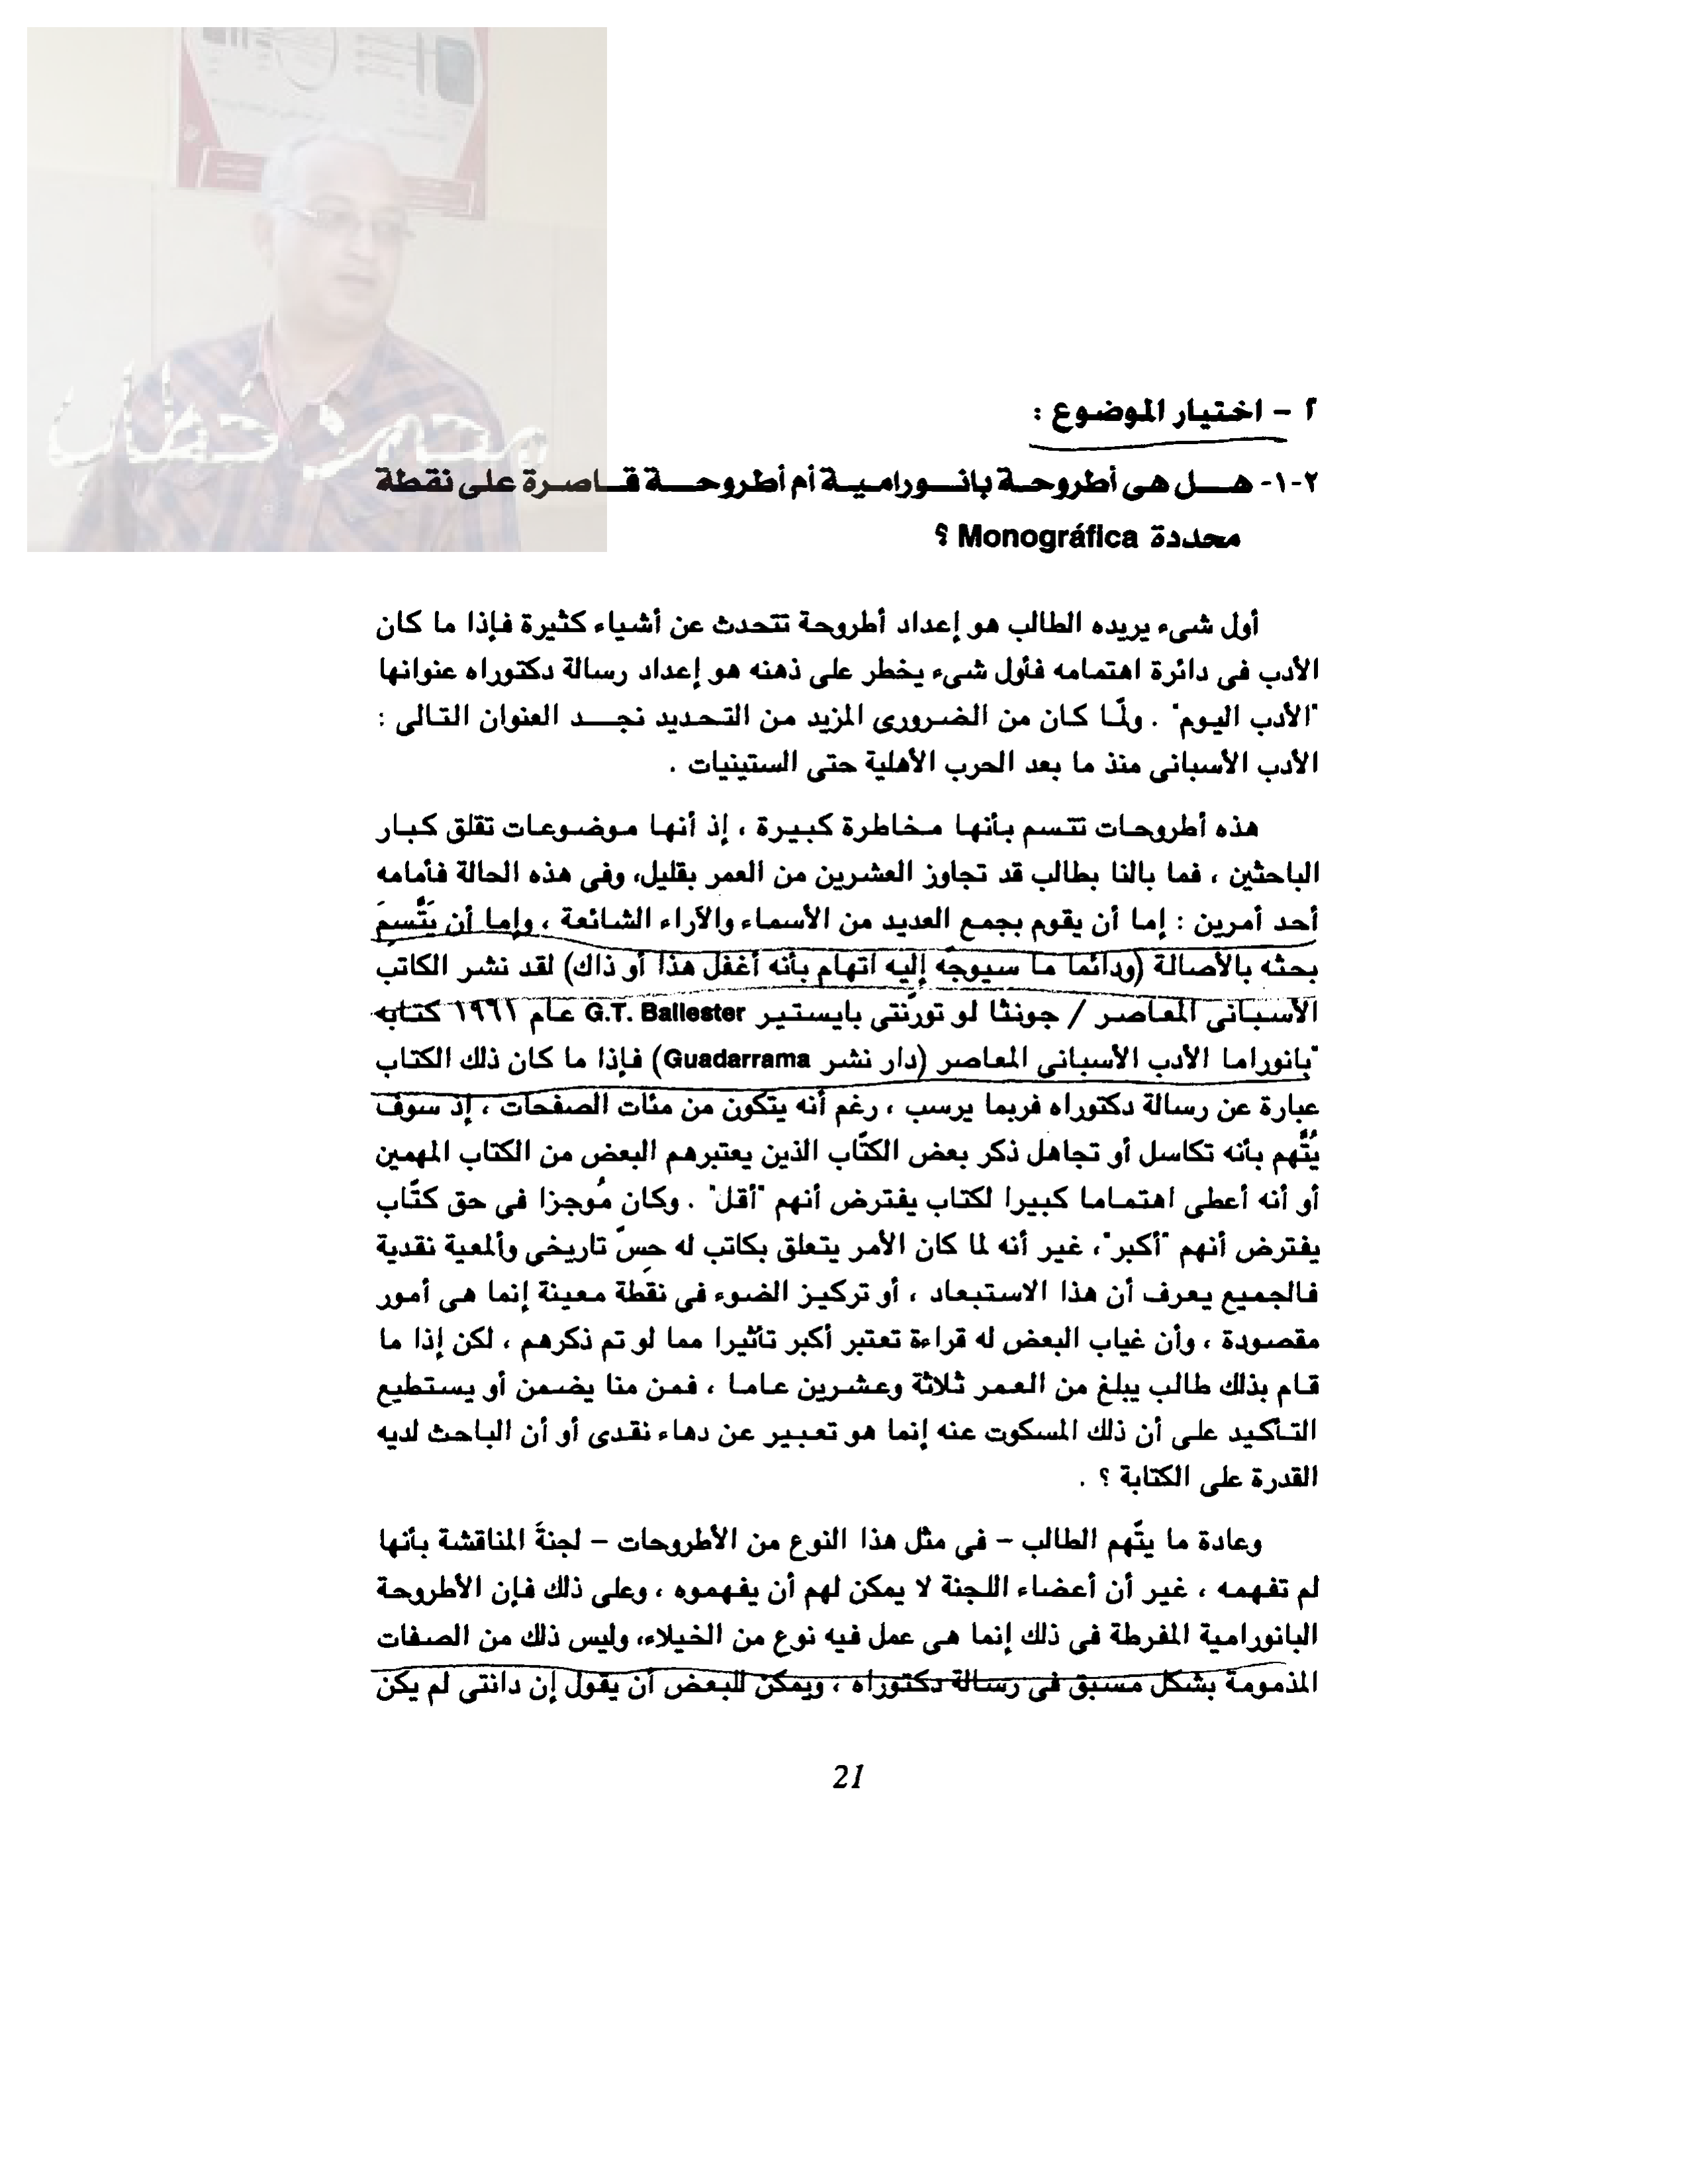 محمد خطاب
٢ - اختيار الموضوع :
٢-١- هـل هى أطروحة بانـورامية أم أطروحـة قـاصرة على نقطة
محددة Monográfica ؟
أول شىء يريده الطالب هو إعداد أطروحة تتحدث عن أشياء كثيرة فإذا ما كان
الأدب فى دائرة اهتمامه فأول شىء يخطر على ذهنه هو إعداد رسالة دكتوراه عنوانها
"الأدب اليوم" . ولمّا كان من الضرورى المزيد من التحديد نجـد العنوان التالى :
الأدب الأسبانى منذ ما بعد الحرب الأهلية حتى الستينيات .
هذه أطروحات تتسم بأنها مخاطرة كبيرة ، إذ أنها موضوعات تقلق كبار
الباحثين ، فما بالنا بطالب قد تجاوز العشرين من العمر بقليل، وفى هذه الحالة فأمامه
أحد أمرين : إما أن يقوم بجمع العديد من الأسماء والآراء الشائعة ، وإما أن يَتَّسِمَ
بحثه بالأصالة (ودائما ما سيوجَّه إليه اتهام بأنه أغفل هذا أو ذاك) لقد نشر الكاتب
الأسبانى المعاصر / جونثا لو تورّنتى بايستير G.T. Ballester عام ١٩٦١ كتابه
"بانوراما الأدب الأسبانى المعاصر (دار نشر Guadarrama) فإذا ما كان ذلك الكتاب
عبارة عن رسالة دكتوراه فربما يرسب ، رغم أنه يتكون من مئات الصفحات ، إذ سوف
يُتَّهم بأنه تكاسل أو تجاهل ذكر بعض الكتّاب الذين يعتبرهم البعض من الكتاب المهمين
أو أنه أعطى اهتماما كبيرا لكتاب يفترض أنهم "أقل" . وكان مُوجزا فى حق كتّاب
يفترض أنهم "أكبر"، غير أنه لما كان الأمر يتعلق بكاتب له حسّ تاريخى وألمعية نقدية
فالجميع يعرف أن هذا الاستبعاد ، أو تركيز الضوء فى نقطة معينة إنما هى أمور
مقصودة ، وأن غياب البعض له قراءة تعتبر أكبر تأثيرا مما لو تم ذكرهم ، لكن إذا ما
قام بذلك طالب يبلغ من العمر ثلاثة وعشرين عاما ، فمن منا يضمن أو يستطيع
التأكيد على أن ذلك المسكوت عنه إنما هو تعبير عن دهاء نقدى أو أن الباحث لديه
القدرة على الكتابة ؟ .
وعادة ما يتّهم الطالب – فى مثل هذا النوع من الأطروحات – لجنةَ المناقشة بأنها
لم تفهمه ، غير أن أعضاء اللجنة لا يمكن لهم أن يفهموه ، وعلى ذلك فإن الأطروحة
البانورامية المفرطة فى ذلك إنما هى عمل فيه نوع من الخيلاء، وليس ذلك من الصفات
المذمومة بشكل مسبق فى رسالة دكتوراه ، ويمكن للبعض أن يقول إن دانتى لم يكن
21